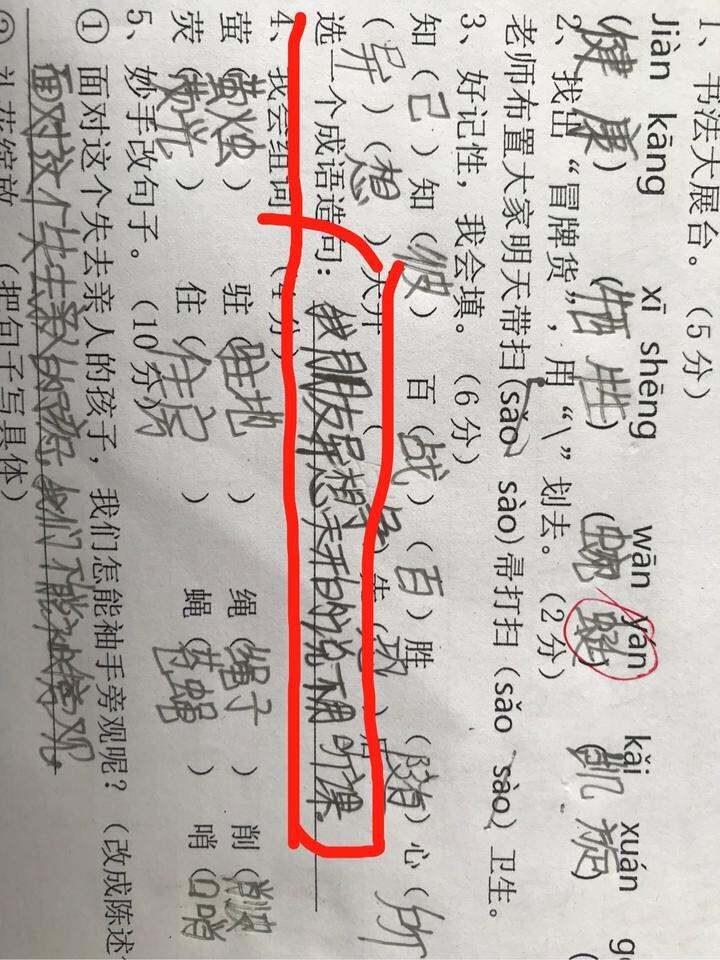 1、书法大展台。(5分)
Jiàn kāng xī shēng wān yán kǎi xuán
(健康) (牺牲) (蜿蜒) (凯旋)
2、找出“冒牌货”,用“\”划去。(2分)
老师布置大家明天带扫(sǎo sào)帚打扫(sǎo sào)卫生。
3、好记性,我会填。(6分)
知(己)知(彼) 百(战)(百)胜 (随)心(所
(异)(想)天开
选一个成语造句:我朋友异想天开的说不用听课。
4、我会组词(4分)
萤(萤烛) 驻(驻地) 绳(绳子) 削(削皮
荧(荧光) 住(住房) 蝇(苍蝇) 哨(口哨
5、妙手改句子。(10分)
① 面对这个失去亲人的孩子,我们怎能袖手旁观呢?(改成陈述
面对这个失去亲人的孩子,我们不能袖手旁观。
② 礼花绽放 (把句子写具体)